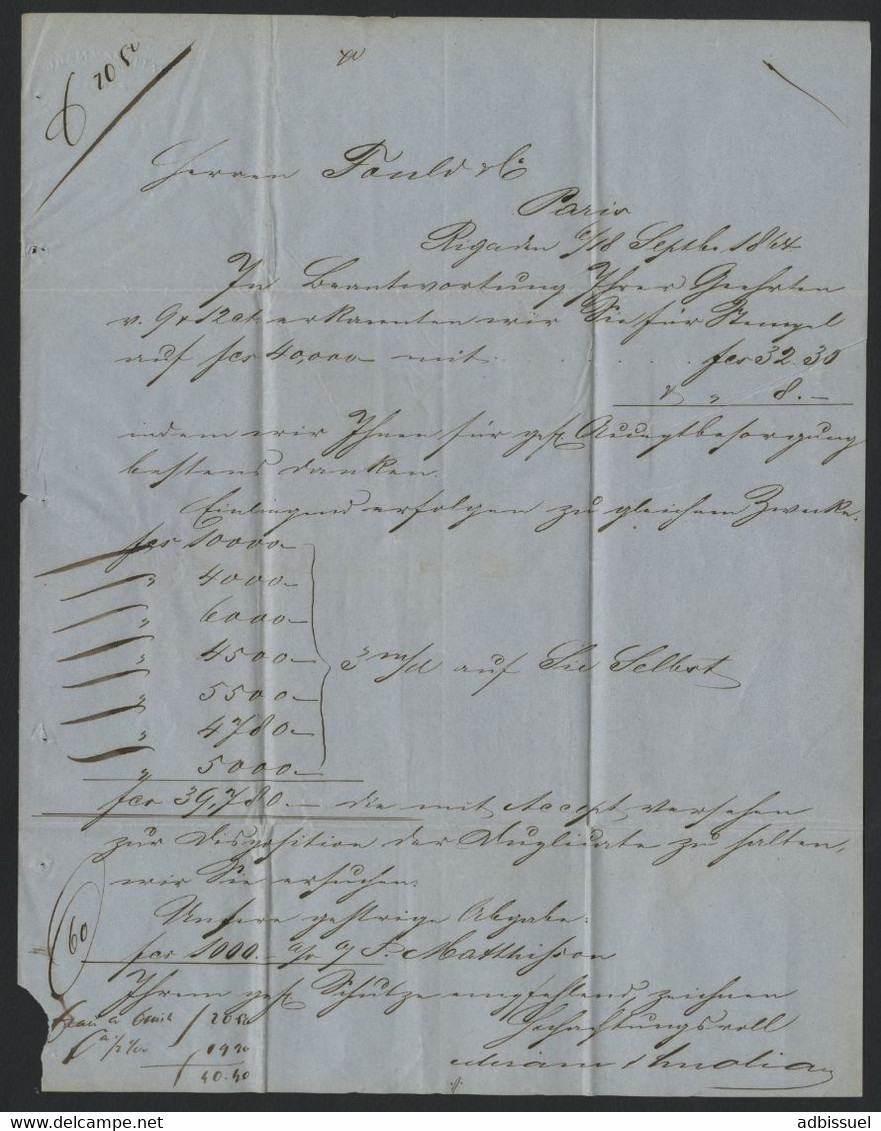 20 50
Herren Fould & Co
Paris
Riga den 6/18 Septbr. 1864
In Beantwortung Ihrer Geehrten
v. 9 & 12 ct. erkannten wir Sie für Stempel
auf fcs 40,000 mit . . . . fcs 32.30
& " 8.—
indem wir Ihnen für gef. Acceptbesorgung
bestens danken.
Einliegend erfolgen zu gleichem Zwecke.
fcs 10000—
" 4000—
" 6000—
" 4500— 3 m/d auf Sie Selbst
" 5500—
" 4780—
" 5000—
fcs 39,780.— die mit Accept versehen
zur Disposition der Duplicate zu halten,
wir Sie ersuchen.
Unsere gestrige Abgabe:
60 fcs 1000.— Matthison
Ihrem gef. Schutze empfehlend, zeichnen
20 50 Hochachtungsvoll
19 90
40.40
adbissuel
www.delcampe.net